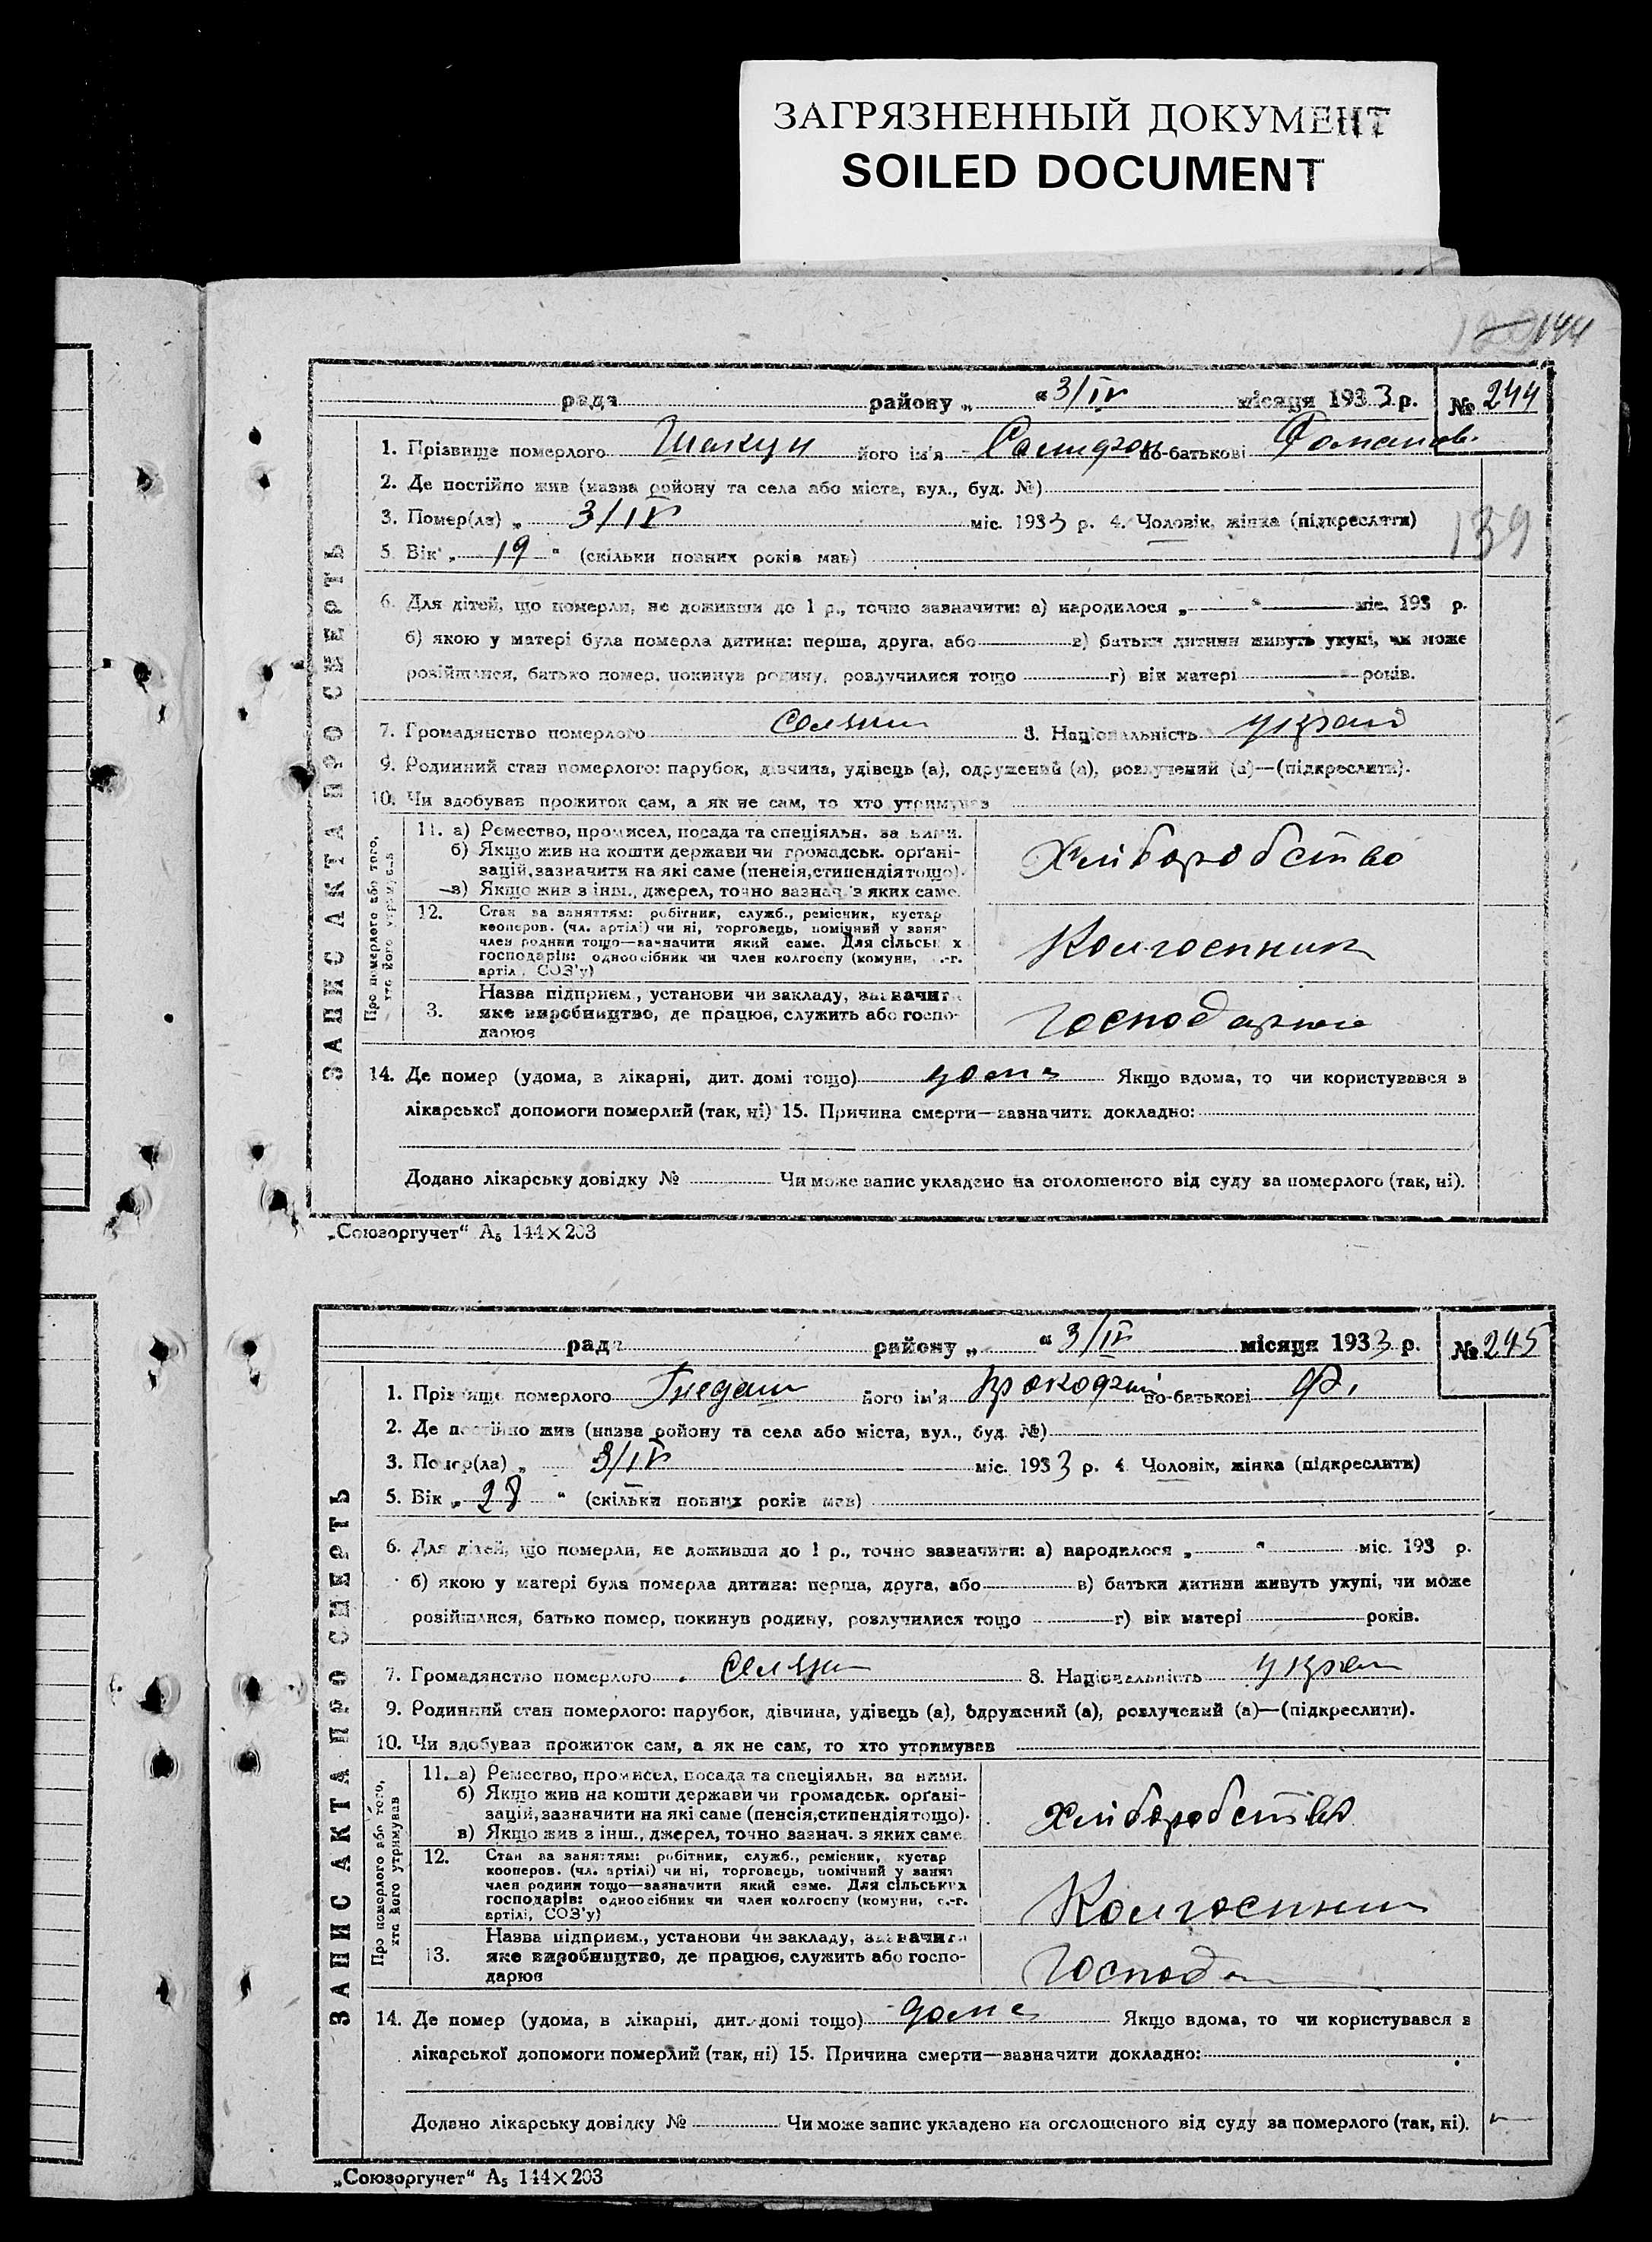 ЗАГРЯЗНЕННЫЙ ДОКУМЕНТ
SOILED DOCUMENT
144
рада району „ “ 3/IV місяця 1933 р. № 244
1. Прізвище померлого Шакун його ім'я по-батькові Романов.
2. Де постійно жив (назва ройону та села або міста, вул., буд. №)
3. Помер(ла) „ 3/IV міс. 1933 р. 4. Чоловік, жінка (підкреслити)
139
5. Вік „ 19 “ (скільки повних років мав)
6. Для дітей, що померли, не доживши до 1 р., точно зазначити: а) народилося „ “ міс. 193 р.
б) якою у матері була померла дитина: перша, друга, або в) батьки дитини живуть укупі, чи може
розійшлися, батько помер, покинув родину, розлучилися тощо г) вік матері років.
7. Громадянство померлого Селянин 8. Національність україн
9. Родинний стан померлого: парубок, дівчина, удівець (а), одружений (а), розлучений (а)—(підкреслити).
10. Чи здобував прожиток сам, а як не сам, то хто утримував
ЗАПИС АКТА ПРО СМЕРТЬ
Про померлого або того, хто його утримував
11. а) Ремество, промисел, посада та спеціяльн. за ними.
б) Якщо жив на кошти держави чи громадськ. орґані-
зацій, зазначити на які саме (пенсія, стипендія тощо).
в) Якщо жив з інш., джерел, точно зазнач. з яких саме.
Хліборобство
12. Стан за заняттям: робітник, служб., ремісник, кустар
кооперов. (чл. артілі) чи ні, торговець, помічний у занят
член родини тощо—зазначити який саме. Для сільських
господарів: одноосібник чи член колгоспу (комуни, с.-г.
артілі, СОЗ'у)
Колгоспник
3. Назва підприєм., установи чи закладу, зазначити
яке виробництво, де працює, служить або госпо-
дарює
14. Де помер (удома, в лікарні, дит. домі тощо) дома Якщо вдома, то чи користувався з
лікарської допомоги померлий (так, ні) 15. Причина смерти—зазначити докладно:
Додано лікарську довідку № Чи може запис укладено на оголошеного від суду за померлого (так, ні).
„Союзоргучет“ А₅ 144×203
рада району „ “ 3/IV місяця 1933 р. № 245
1. Прізвище померлого Гнедаш його ім'я по-батькові Ф.
2. Де постійно жив (назва ройону та села або міста, вул., буд. №)
3. Помер(ла) „ 3/IV міс. 1933 р. 4. Чоловік, жінка (підкреслити)
5. Вік „ 28 “ (скільки повних років мав)
6. Для дітей, що померли, не доживши до 1 р., точно зазначити: а) народилося „ “ міс. 193 р.
б) якою у матері була померла дитина: перша, друга, або в) батьки дитини живуть укупі, чи може
розійшлися, батько помер, покинув родину, розлучилися тощо г) вік матері років.
7. Громадянство померлого Селян 8. Національність украін
9. Родинний стан померлого: парубок, дівчина, удівець (а), одружений (а), розлучений (а)—(підкреслити).
10. Чи здобував прожиток сам, а як не сам, то хто утримував
ЗАПИС АКТА ПРО СМЕРТЬ
Про померлого або того, хто його утримував
11. а) Ремество, промисел, посада та спеціяльн. за ними.
б) Якщо жив на кошти держави чи громадськ. орґані-
зацій, зазначити на які саме (пенсія, стипендія тощо).
в) Якщо жив з інш., джерел, точно зазнач. з яких саме.
Хліборобство
12. Стан за заняттям: робітник, служб., ремісник, кустар
кооперов. (чл. артілі) чи ні, торговець, помічний у занят
член родини тощо—зазначити який саме. Для сільських
господарів: одноосібник чи член колгоспу (комуни, с.-г.
артілі, СОЗ'у)
Колгоспник
13. Назва підприєм., установи чи закладу, зазначити
яке виробництво, де працює, служить або госпо-
дарює
Господа
14. Де помер (удома, в лікарні, дит. домі тощо) дома Якщо вдома, то чи користувався з
лікарської допомоги померлий (так, ні) 15. Причина смерти—зазначити докладно:
Додано лікарську довідку № Чи може запис укладено на оголошеного від суду за померлого (так, ні).
„Союзоргучет“ А₅ 144×203